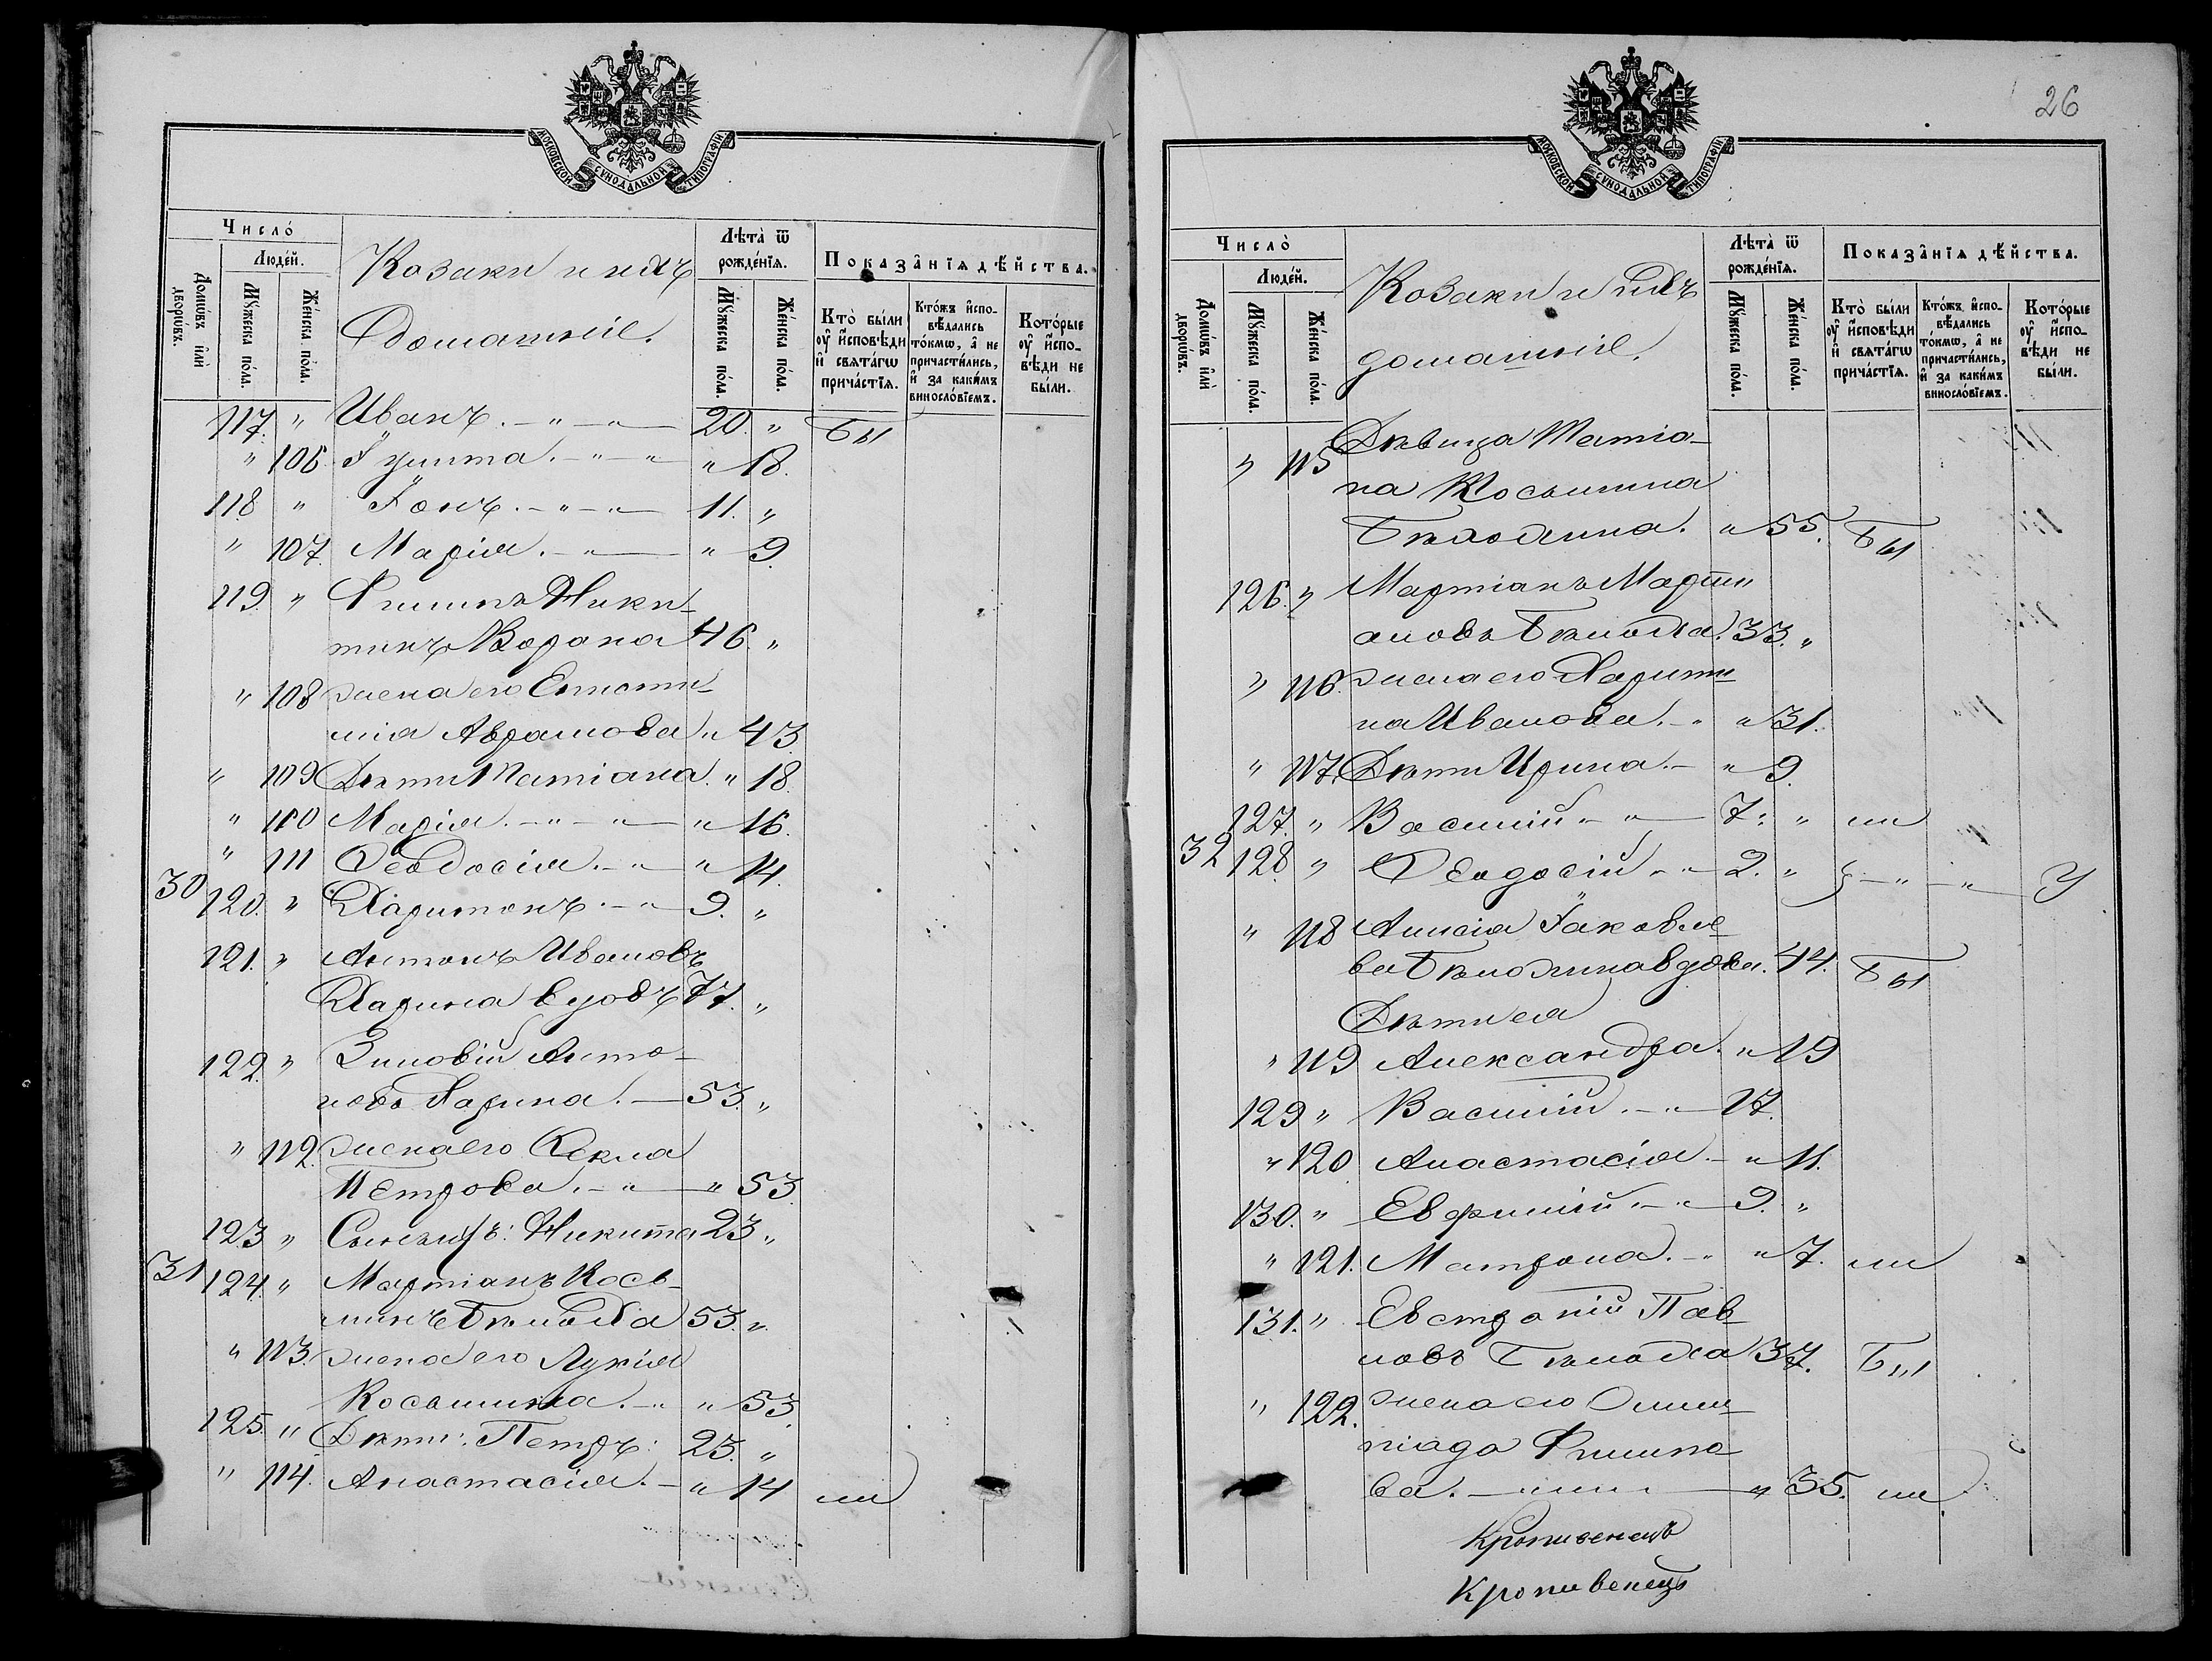 МОСКОВСКОЙ СУНОДАЛЬНОЙ ТИПОГРАФІИ
Число̀
Людей.
Домѡвъ или дворѡвъ.
Мꙋжеска пола.
Женска пола.
Козаки и ихъ
домашніе.
Лѣта ѿ рожденїѧ.
Мꙋжеска пола.
Женска пола.
Показанїѧ дѣйства.
Кто были оу исповѣди и свѧтагѡ причастїѧ.
Ктожъ исповѣдались токмѡ, а не причастились, и за какимъ винословїемъ.
Которые оу исповѣди не были.
117. " Иванъ. - " - " 20. " Бы
" 106. Іулита. - " - " " 18.
118 " Іонъ. - " - " 11. "
" 107. Марія. - " " 9.
119. " Филипъ Ники-
тинъ Ворона 46. "
" 108 жена его Еписти-
мія Аврамова " 43.
" 109 Дѣти Татіана. " 18.
" 110 Марія. - " - " " 16.
" 111 Ѳеодосія. - " " 14.
30 120. " Харитонъ. - " 9. "
121. " Антонъ Ивановъ
Харина вдовъ 77. "
122. " Зиновій Анто-
новъ Харина. 53. "
" 112. жена его Ѳекла
Петрова. - " " 53.
123 " Сынъ ихъ: Никита 23 "
31 124. " Мартіанъ Кось-
минъ Бѣлоха 53. "
" 113. жена его Лукія
Косьмина. - " " 53.
125. " Дѣти: Петръ: 23. "
" 114. Анастасія. - " 14 ли
26
МОСКОВСКОЙ СУНОДАЛЬНОЙ ТИПОГРАФІИ
Число̀
Людей.
Домѡвъ или дворѡвъ.
Мꙋжеска пола.
Женска пола.
Козаки и ихъ
домашніе.
Лѣта ѿ рожденїѧ.
Мꙋжеска пола.
Женска пола.
Показанїѧ дѣйства.
Кто были оу исповѣди и свѧтагѡ причастїѧ.
Ктожъ исповѣдались токмѡ, а не причастились, и за какимъ винословїемъ.
Которые оу исповѣди не были.
" 115 Дѣвица Татіа-
на Косьмина
Бѣлохина. " 55. Бы
126. " Мартіанъ Марти
ановъ Бѣлоха. 33. "
" 116. жена его Харити
на Иванова. - " " 31.
" 117. Дѣти Ирина. - " 9.
127. " Василій - " 7. " ли
32 128. " Ѳеодосій - " 2. " " " У
" 118 Анисія Іаковле
ва Бѣлохина вдова. 44. Бы
Дѣти ея
" 119 Александра. " 19
129 " Василій. - " 17.
" 120 Анастасія - " 11.
130. " Евфимій - " 9. "
" 121. Матрона. - " " 7. ли
131. " Евстратій Пав
ловъ Бѣлоха 37. Бы
" 122. жена его Олим
піада Филипо
ва. " 35. ли
Кропивенецъ
Кропивенецъ